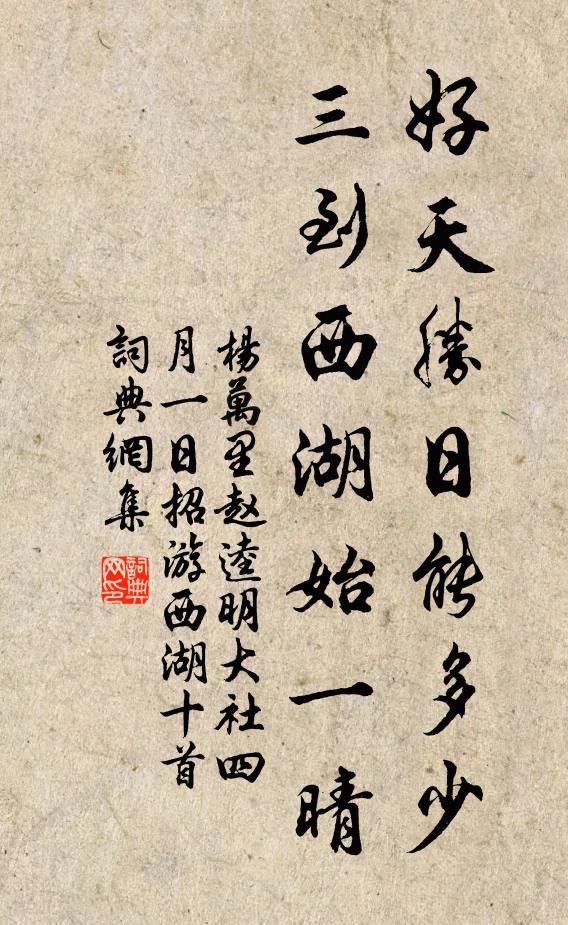 好天勝日能多少
三到西湖始一晴
楊萬里赵逵明大社四
月一日招游西湖十首
詞典網集
詞典网印